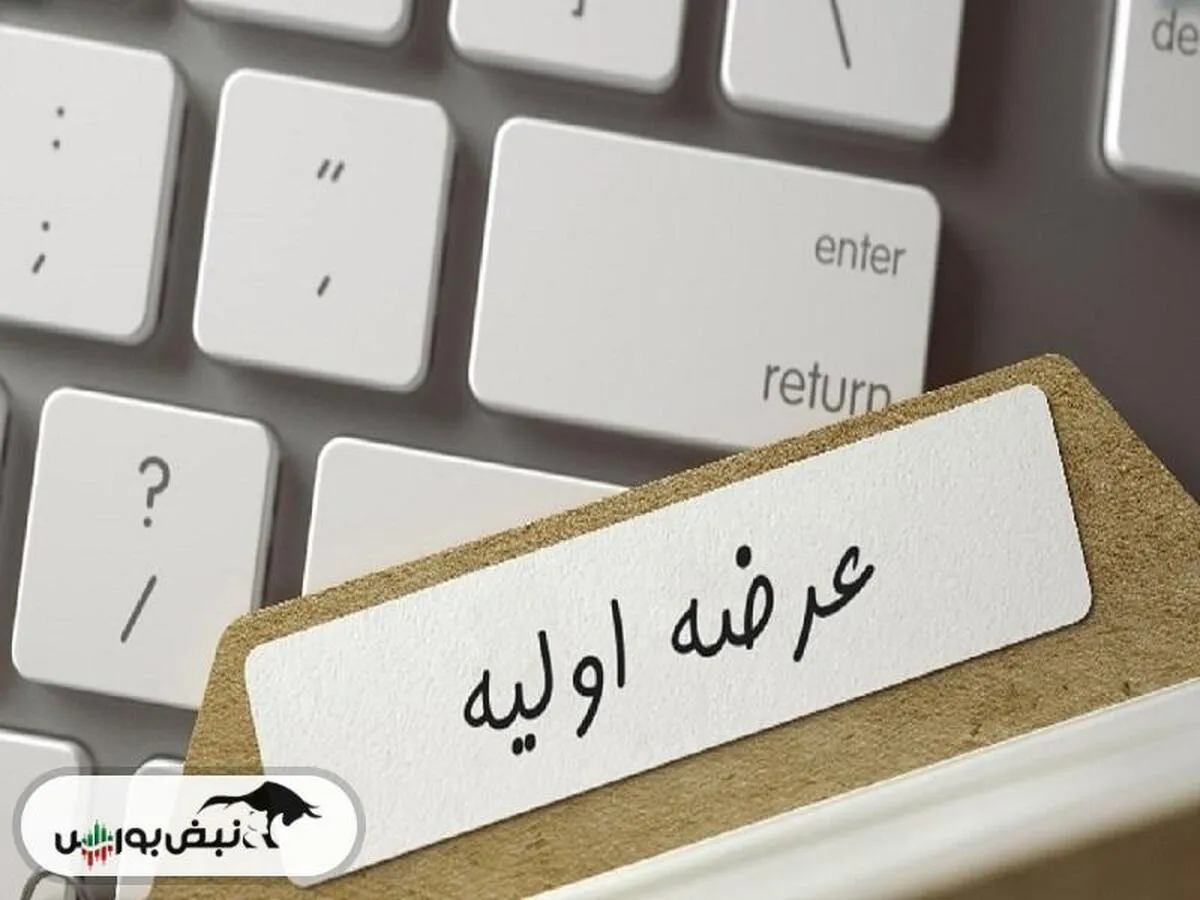 ]
\
de
:
;
"
'
enter
return
?
/
عرضه اولیه
نبض بورس